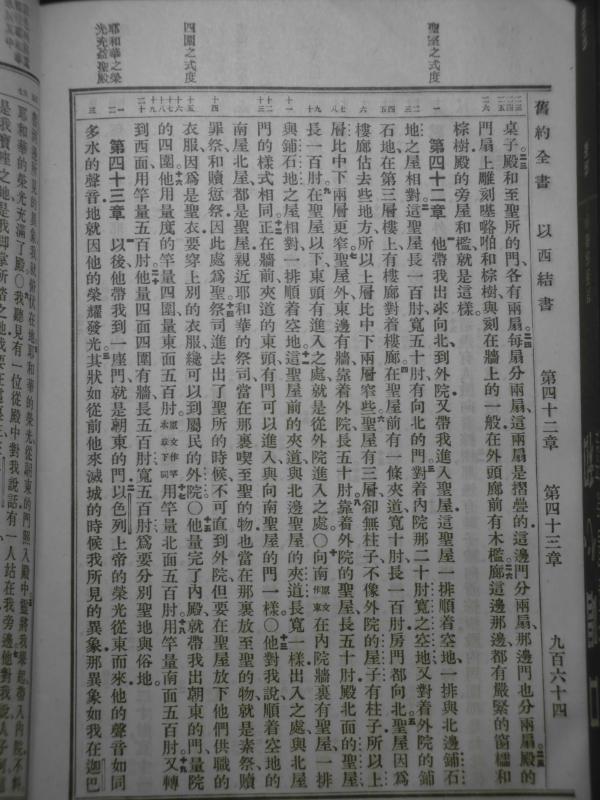 舊約全書 以西結書 第四十二章 第四十三章 九百六十四
聖屋之式度
四圍之式度
耶和華之榮
光充滿聖殿
桌子殿和至聖所的門各有兩扇、每扇分兩扇、這兩扇是摺疊的、這邊門分兩扇、那邊門也分兩扇、殿的
門扇上雕刻𠼻𡀔帕和棕樹與刻在牆上的一般、在外頭廊前有木檻、廊這邊那邊都有嚴緊的窗櫺和
棕樹、殿的旁屋和檻就是這樣。
第四十二章 他帶我出來向北到外院、又帶我進入聖屋、這聖屋一排順着空地、一排與北邊鋪石
地之屋相對、這聖屋長一百肘、寬五十肘、有向北的門、對着內院那二十肘寬之空地、又對着外院的鋪
石地、在第三層樓上有樓廊對着樓廊、在聖屋前有一條夾道、寬十肘、長一百肘、房門都向北、聖屋因爲
樓廊佔去些地方、所以上層比中下兩層窄些、聖屋有三層、卻無柱子、不像外院的屋子有柱子、所以上
層比中下兩層更窄、聖屋外東邊有牆、靠着外院、長五十肘、靠着外院的聖屋長五十肘、殿北面的聖屋
長一百肘、在聖屋以下、東頭有進入之處、就是從外院進入之處。〇向南原文作東在內院牆裏有聖屋一排
與鋪石地之屋相對、一排順着空地、這聖屋前的夾道與北邊聖屋的夾道長寬一樣、出入之處與北屋
門的樣式相同、正在牆前夾道的東頭有門可以進入、與向南聖屋的門一樣。〇他對我說、順着空地的
南屋北屋都是聖屋、親近耶和華的祭司當在那裏喫至聖的物、也當在那裏放至聖的物、就是素祭贖
罪祭和贖愆祭、因此處爲聖、祭司進去出了聖所的時候、不可直到外院、但要在聖屋放下他們供職的
衣服、因爲是聖衣、要穿上別的衣服、纔可以到屬民的外院。〇他量完了內殿、就帶我出朝東的門、量院
的四圍、他用量度的竿量四圍、量東面五百肘、原文作竿本章下同用竿量北面五百肘、用竿量南面五百肘、又轉
到西面、用竿量五百肘、他量四面、四圍有牆、長五百肘、寬五百肘、爲要分別聖地與俗地。
第四十三章 以後他帶我到一座門、就是朝東的門、以色列上帝的榮光從東而來、他的聲音如同
多水的聲音、地就因他的榮耀發光、其狀如從前他來滅城的時候我所見的異象、那異象如我在迦巴
魯河邊所見的異象、我就俯伏在地、耶和華的榮光從朝東的門照入殿中、靈將我舉起、帶入內院、不料
耶和華的榮光充滿了殿。〇我聽見有一位從殿中對我說話、有一人站在我旁邊、他對我說、人子
是我寶座之地、是我腳掌所踏之地、我要在這裏住